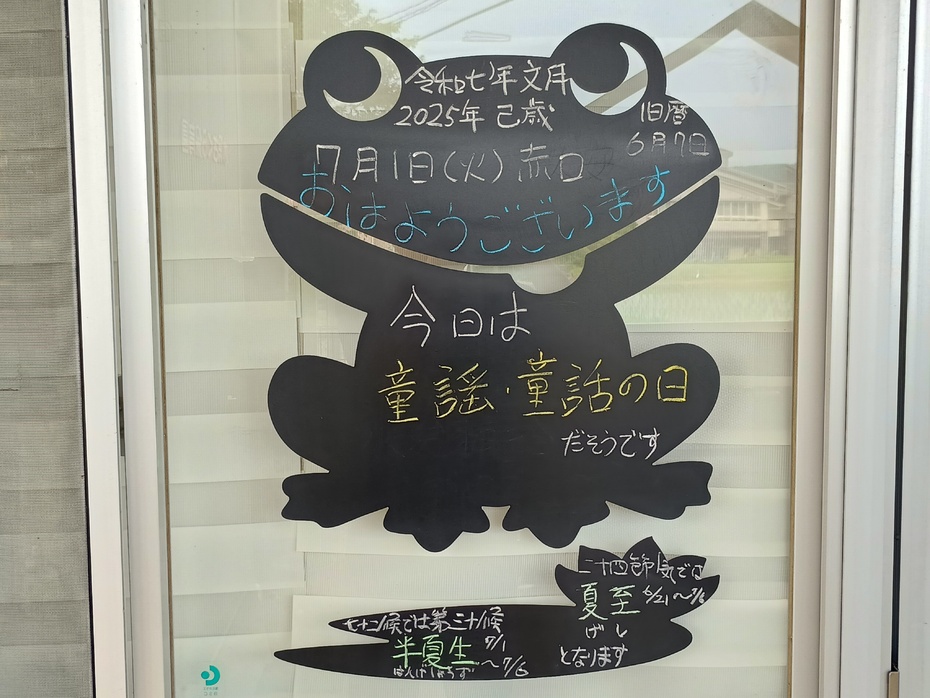 令和七年 文月
2025年 己歳
旧暦
6月7日
7月1日(火)赤口
おはようございます
今日は
童謡・童話の日
だそうです
二十四節気では
夏至 6/21～7/6
げし
となります
七十二候では第三十候
半夏生 7/1～7/6
はんげしょうず